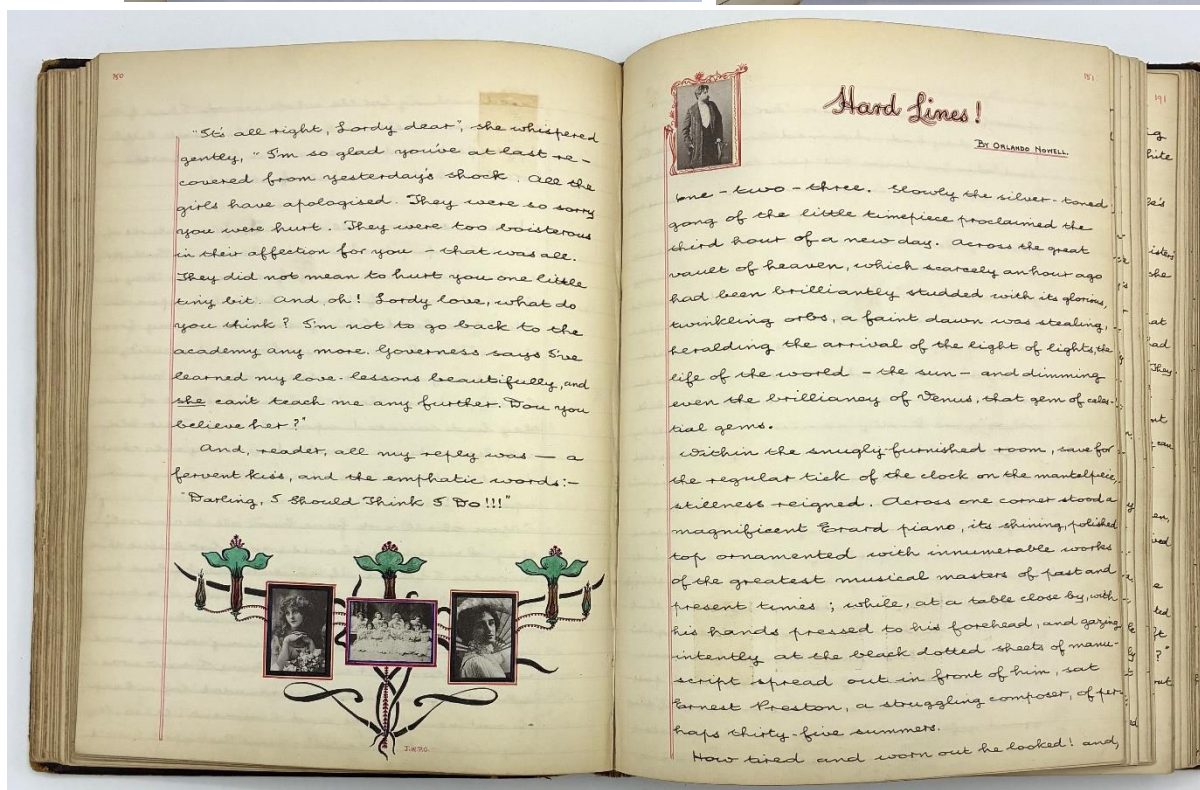 150
"It's all right, Lordy dear", she whispered
gently, "I'm so glad you've at last re-
covered from yesterday's shock. All the
girls have apologised. They were so sorry
you were hurt. They were too boisterous
in their affection for you – that was all.
They did not mean to hurt you one little
tiny bit. And, oh! Lordy love, what do
you think? I'm not to go back to the
academy any more. Governess says I've
learned my love-lessons beautifully, and
she can't teach me any further. Dou you
believe her?"
And, reader, all my reply was — a
fervent kiss, and the emphatic words:-
"Darling, I Should Think I Do!!!"
151
Hard Lines!
By Orlando Nowell.
One – two – three. Slowly the silver-toned
gong of the little timepiece proclaimed the
third hour of a new day. Across the great
vault of heaven, which scarcely an hour ago
had been brilliantly studded with its glorious,
twinkling orbs, a faint dawn was stealing,
heralding the arrival of the light of lights, the
life of the world – the sun – and dimming
even the brilliancy of Venus, that gem of celes-
tial gems.
Within the snugly-furnished room, save for
the regular tick of the clock on the mantelpiece,
stillness reigned. Across one corner stood a
magnificent Erard piano, its shining, polished
top ornamented with innumerable works
of the greatest musical masters of past and
present times; while, at a table close by, with
his hands pressed to his forehead, and gazing
intently at the black dotted sheets of manu-
script spread out in front of him, sat
Ernest Preston, a struggling composer, of per-
haps thirty-five summers.
How tired and worn out he looked! and,
191